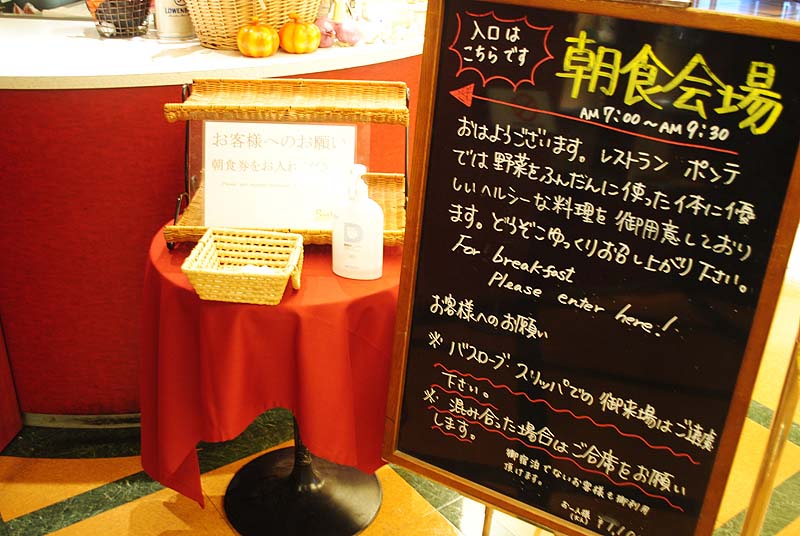 LÖWEN
お客様へのお願い
朝食券をお入れ
入口は
こちらです
朝食会場
AM 7:00〜AM 9:30
おはようございます。レストラン ポンテ
では野菜をふんだんに使った体に優
しいヘルシーな料理を御用意しており
ます。どうぞごゆっくりお召し上がり下さい。
For breakfast
Please enter here!
お客様へのお願い
※ バスローブ・スリッパでの御来場はご遠慮
下さい。
※ 混み合った場合はご合席をお願い
します。
御宿泊でないお客様も御利用
頂けます。
お一人様
(大人)